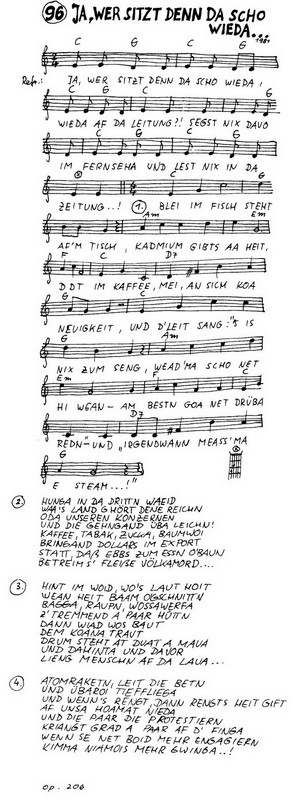 96 JA, WER SITZT DENN DA SCHO
WIEDA...
1981
C G C G
Refr.: JA, WER SITZT DENN DA SCHO WIEDA,
C G C G
WIEDA AF DA LEITUNG?! SEGST NIX DAVO
C G
IM FERNSEHA UND LEST NIX IN DA
C G
ZEITUNG..! 1. BLEI IM FISCH STEHT
Am Em
AF'M TISCH, KADMIUM GIBTS AA HEIT,
F C D7
DDT IM KAFFEE, MEI, AN SICH KOA
G C
NEUIGKEIT, UND D'LEIT SANG: "'S IS
G Am
NIX ZUM SENG, WEAD'MA SCHO NET
Em F C
HI WEAN - AM BESTN GOA NET DRÜBA
D7
REDN" - UND "IRGENDWANN MEASS'MA
G
E STEAM...!"
2. HUNGA IN DA DRITTN WAEID
WAA'S LAND GHÖRT DENE REICHN
ODA UNSEREN KONZERNEN
UND DIE GEHNGAND ÜBA LEICHN!
KAFFEE, TABAK, ZUCKA, BAUMWOI
BRINGAND DOLLARS IM EXPORT
STATT, DAß EBBS ZUM ESSN O'BAUN
BETREIM S' FLEUßE VÖLKAMORD...
3. HINT IM WOID, WO'S LAUT HOIT
WEAN HEIT BAAM OGSCHNITTN
BAGGA, RAUPN, WOSSAWERFA
Z'TREMMEND A PAAR HÜTTN
DANN WIAD WOS BAUT
DEM KOANA TRAUT
DRUM STEHT AT DUAT A MAUA
UND DAHINTA UND DAVOR
LIENG MENSCHN AF DA LAUA...
4. ATOMRAKETN, LEIT DIE BETN
UND ÜBAROI TIEFFLIEGA
UND WENN'S RENGT, DANN RENGTS HEIT GIFT
AF UNSA HOAMAT NIEDA
UND DIE PAAR DIE PROTESTIERN
KRIANGT GRAD A PAAR AF D' FINGA
WENN SE NET BOID MEHR ENGAGIERN
KIMMA NIAMOIS MEHR GWINGA..!
op. 206